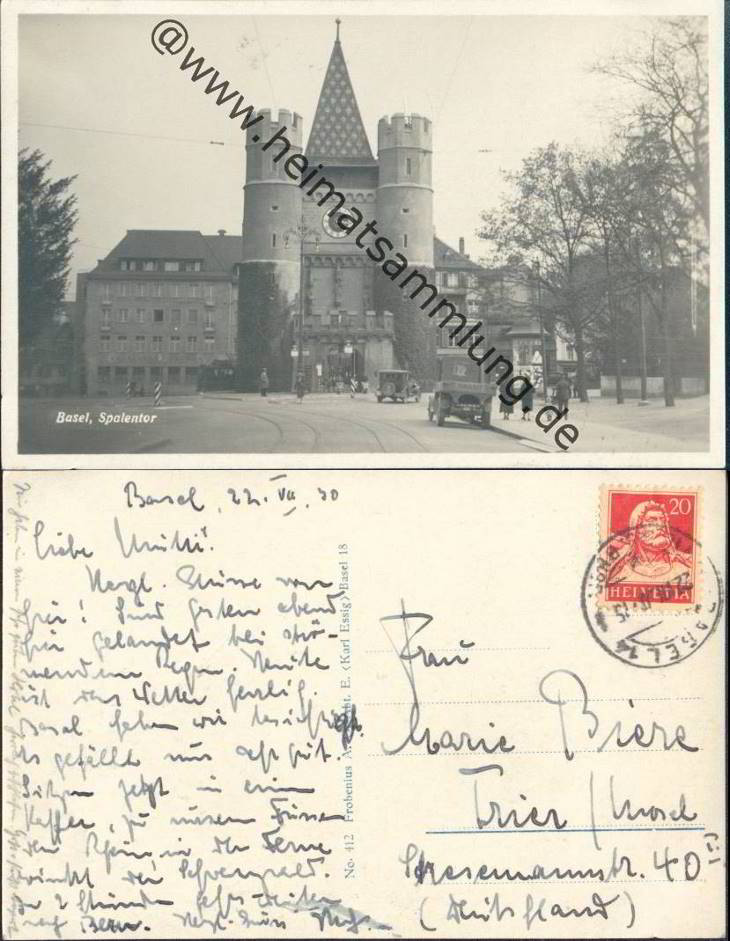 @www.heimatsammlung.de
Basel, Spalentor
Basel, 22. VII. 30
Liebe Mutti!
Herzl. Grüsse von
hier! Sind gestern abend
hier gelandet bei strö-
mendem Regen. Heute
ist das Wetter herrlich.
Basel haben wir besichtigt.
Es gefällt uns sehr gut.
Sitzen jetzt in einem
Kaffee, zu unseren Füssen
der Rhein, in der Ferne
winkt der Schwarzwald.
In 2 Stunden gehts weiter
nach Bern. Herzl. Gruss
No. 412 Frobenius A. Abt. E. (Karl Essig) Basel 18
20
HELVETIA
BASEL 14
Frau
Marie Biere
Trier / Mosel
Stresemannstr. 40
(Deutschland)